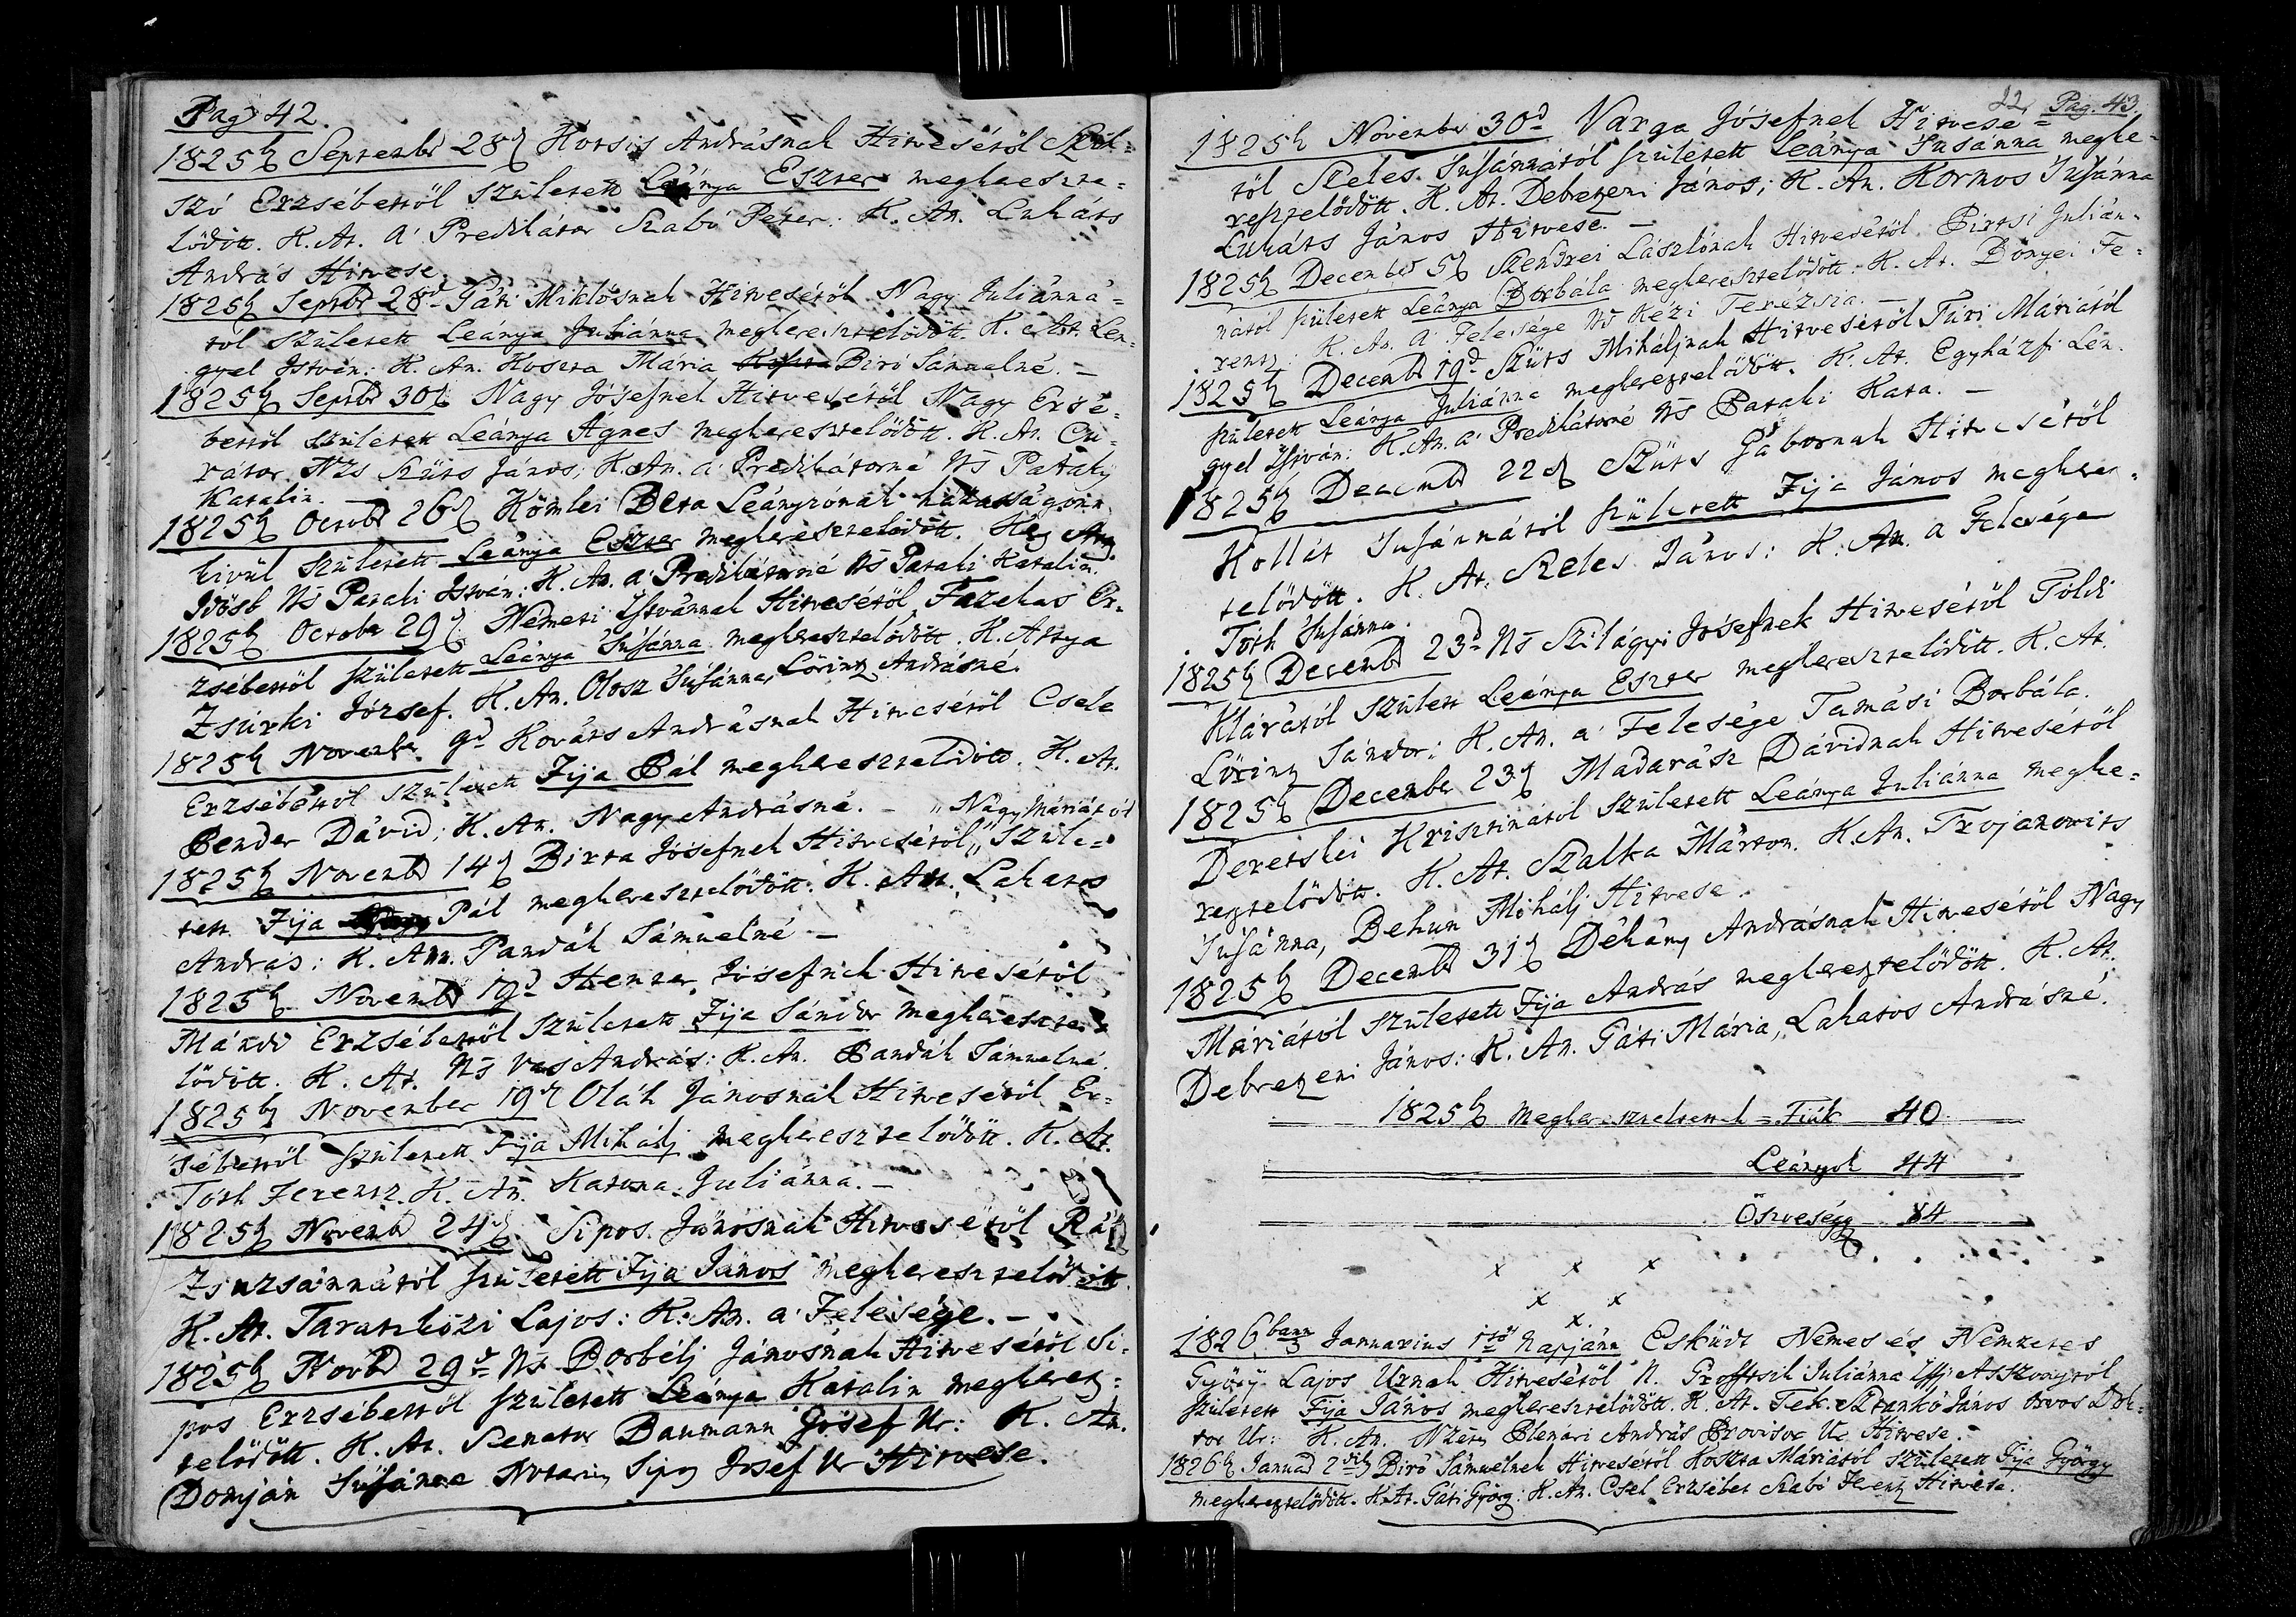 Pag. 42.
1825b Septembr 28d Kotsis Andrásnak Hitvesétöl Szil=
szó Erzsébettöl született Leánya Eszter megkereszte=
lödött. K. At. A' Predikátor Szabó Péter. K. An. Lukáts
András Hitvese.
1825b Septbr 28d Páti Miklósnak Hitvesétöl Nagy Juliánná=
tól született Leánya Juliánna megkeresztelödött. K. At. Len=
gyel István: K. An. Koszta Mária Biró Sámuelné. —
1825b Septbr 30d Nagy Jósefnek Hitvesétöl Nagy Ersé=
bettöl született Leánya Ágnes megkeresztelödött. K. At. Cu=
rátor Nzs Szüts János; K. An. a' Predikátorné Ns Pataki
Katalin.
1825b Octobr 26d Kömlei Beta Leányzónak házasságonn
kivül született Leánya Eszter megkeresztelödött.
Idösb Ns Pataki István: K. An. a' Predikátorné Ns Pataki Katalin.
1825b October 29d Németi Istvánnak Hitvesétöl Fazekas Er=
zsébettöl született Leánya Susánna megkeresztelödött. K. Attya
Zsurki József. K. An. Olosz Susánna, Lörintz Andrásné.
1825b Novembr 9d Kováts Andrásnak Hitvesétöl Csele
Erzsébettöl született Fija Pál megkeresztelödött. K. At.
Bender Dávid; K. An. Nagy Andrásné. — „Nagy Máriától
1825b Novembr 14d Birta Jósefnek Hitvesétöl „Szüle=
tett Fija Pál megkeresztelödött. K. At. Lakatos
András: K. Ann. Pandák Sámuelné —
1825b Novembr 19d Henzer Jósefnek Hitvesétöl
Mándi Erzsébettöl született Fija Sándor megkereszte=
lödött. K. At. Ns Vas András: K. An. Pandák Sámuelné.
1825b November 19d Oláh Jánosnak Hitvesétöl Er=
sébettöl született Fija Mihály megkeresztelödött. K. At.
Tóth Ferentz. K. An. Katona Juliánna. —
1825b Novembr 24d Sipos Jánosnak Hitvesétöl Rátz
Zsuzsánnától született Fija János megkeresztelödött
K. At. Taratzközi Lajos: K. An. a' Felesége. —
1825b Novbr 29d Ns Borbélj Jánosnak Hitvesétöl Si=
pos Erzsébettöl született Leánya Katalin megkeresz=
telödött. K. At. Senator Baumann Jósef Ur: K. An.
Domján Susánna Notarius Sipos Jósef Ur Hitvese.
22. Pag. 43.
1825b Novembr 30d Varga Jósefnek Hitvesé=
töl Szeles Susánnától született Leánya Susánna megke=
resztelödött. K. At. Debretzeni János; K. An. Kormos Susánna
Lukáts János Hitvese. —
1825b Decembr 5d Szendrei Lászlónak Hitvesétöl Birtsi Julián=
nától született Leánya Borbála megkeresztelödött. K. At. Dönyei Fe=
rentz: K. An. A' Felesége Ns Kézi Terézsia. —
1825b Decembr 19d Szüts Miháljnak Hitvesétöl Túri Máriától
született Leánya Juliánna megkeresztelödött. K. At. Egyházfi Len=
gyel István: K. An. a' Predikátorné Ns Pataki Kata. —
1825b Decembr 22d Szüts Gábornak Hitvesétöl
Kollát Susánnától született Fija János megkeresz=
telödött. K. At. Szeles János: K. An. a Felesége
Tóth Susánna.
1825b Decembr 23d Ns Szilágyi Jósefnek Hitvesétöl Földi
Klárától születt Leánya Eszter megkeresztelödött. K. At.
Lörintz Sándor: K. An. a' Felesége Tamási Borbála.
1825b December 23d Madarász Dávidnak Hitvesétöl
Deretskei Krisztinától született Leánya Juliánna megke=
resztelödött. K. At. Szalka Márton. K. An. Trojanovits
Susánna, Behun Mihálj Hitvese.
1825b Decembr 31d Dékány Andrásnak Hitvesétöl Nagy
Máriától született Fija András megkeresztelödött. K. At.
Debretzeni János: K. An. Páti Mária, Lakatos Andrásné.
1825b Megkereszteltettek = Fiúk 40
Leányok 44
Öszveségg 84
x x x
x x
x
1826bann Januarius 1sö Napjánn Esküdt Nemes és Nemzetes
Györy Lajos Urnak Hitvesétöl N. Juliánna Ifjj Asszonytól
született Fija János megkeresztelödött. K. At. Tek. Sztankó János Orvos Dok=
tor Ur: K. An. Nzts Blenari András Provisor Ur Hitvese. —
1826b Januar 2dik Biró Sámuelnek Hitvesétöl Koszta Máriától született Fija György
megkeresztelödött. K. At. Páti Györg: K. An. Csel Erzsébet Szabó Ferentz Hitvese.